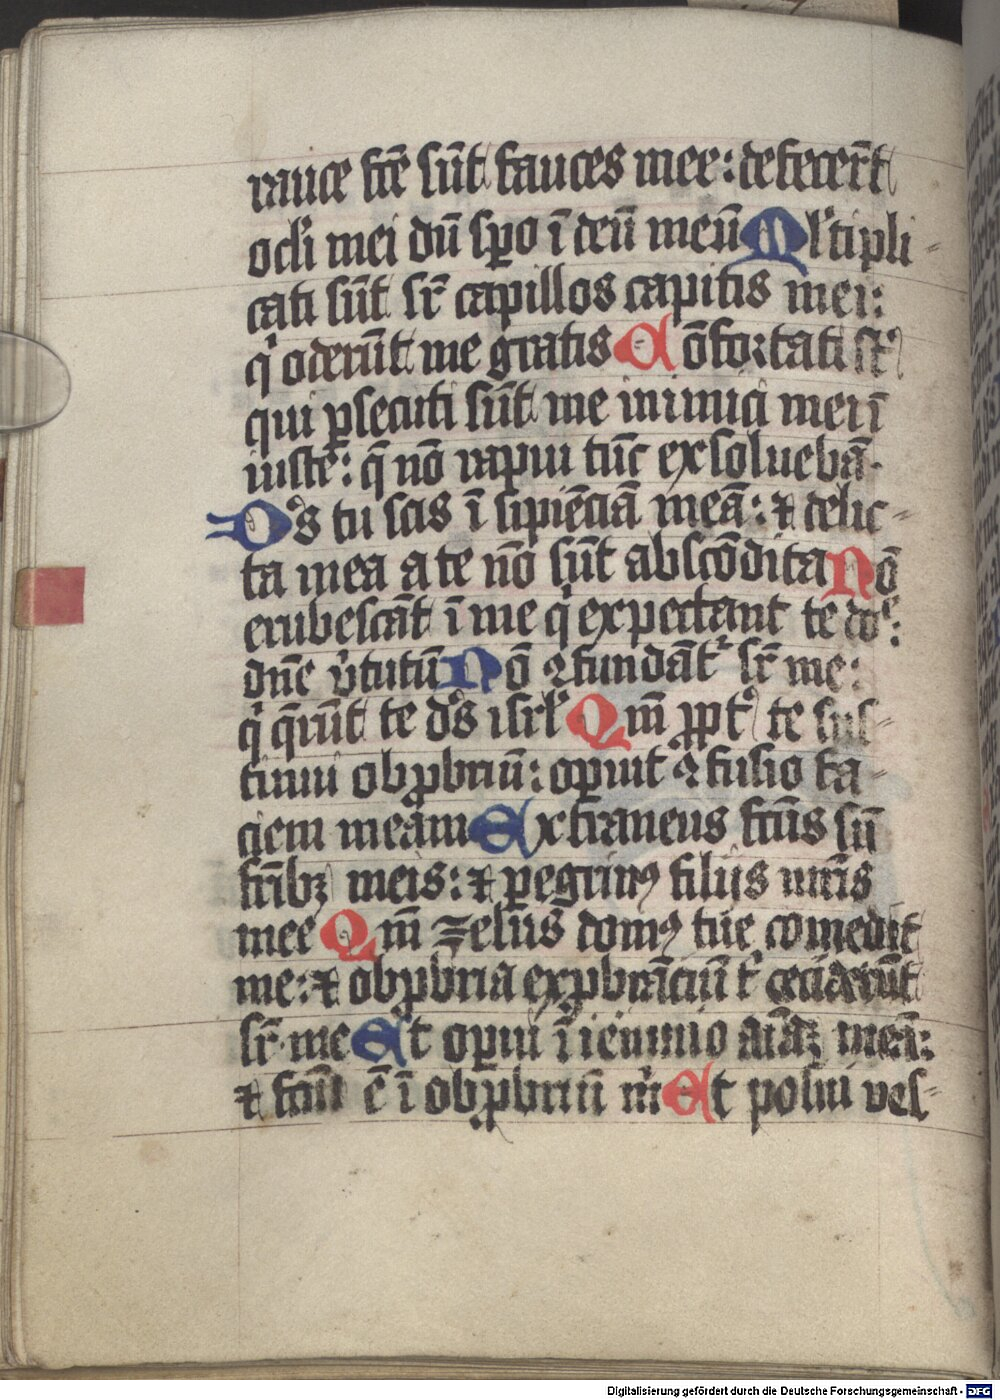 rauce fcē sūt fauces mee: defecer̄t
ocl̄i mei dū sꝑo ī deū meū Ml̄tipli-
cati sūt sr̄ capillos capitis mei:
q̇ oderūt me gratis Cōfortati st̄
qui ꝑsecuti sūt me inimici mei ī
iuste: q̄ nō rapui tūc exsoluebā.
Ds̄ tu scis ī sipiēciā meā: ⁊ delic-
ta mea a te nō sūt abscōdita Nō
erubescāt ī me q̇ expectant te do͞e:
dn̄e v̇tutū Nō ꝯfundāt᷑ sr̄ me:
q̇ q̄rūt te ds̄ isrl̄ Qm̄ ꝓpt᷑ te sus-
tinui obꝓbriū: oꝑuit ꝯfusio fa-
ciem meam Extraneus fcūs sū
frībꝫ meis: ⁊ ꝑegrinꝰ filiis mr̄is
mee Qm̄ zelus domꝰ tue comedit
me: ⁊ obꝓbria exꝓbrāciū t᷑ ceciderūt
sr̄ me Et oꝑui ī ieiunio aīaꝫ meā:
⁊ fcm̄ ē ī obꝓbriū ṁ Et posui ves-
Digitalisierung gefördert durch die Deutsche Forschungsgemeinschaft - DFG